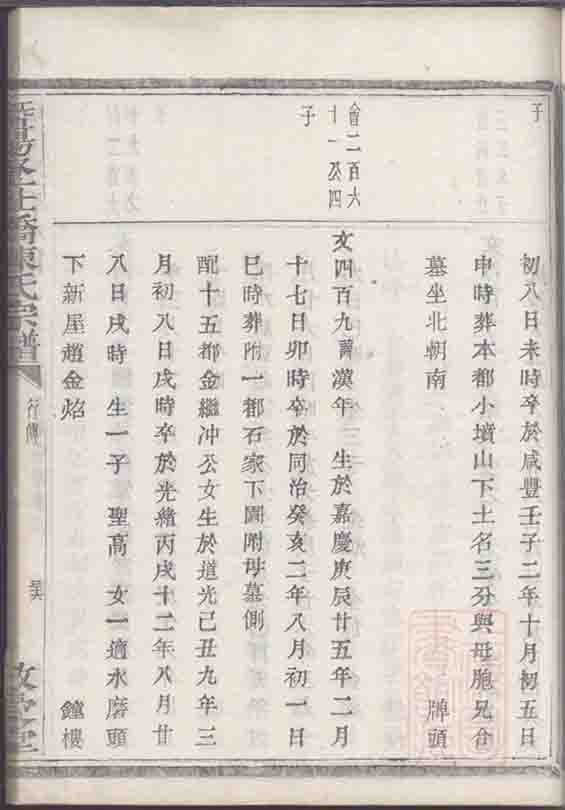 子
初八日未時卒於咸豐壬子二年十月初五日
申時葬本都小墳山下土名三分與母胞兄合
墓坐北朝南 牌頭
會二百六
十一公四
子
文四百九 諱漢年 生於嘉慶庚辰廿五年二月
十七日卯時卒於同治癸亥二年八月初一日
巳時葬附一都石家下園附母墓側
配十五都金繼冲公女生於道光己丑九年三
月初八日戌時卒於光緒丙戌十二年八月廿
八日戌時 生一子 聖高 女一適水磨頭
下新屋趙金焰 鐘樓
陳氏宗譜
行傳